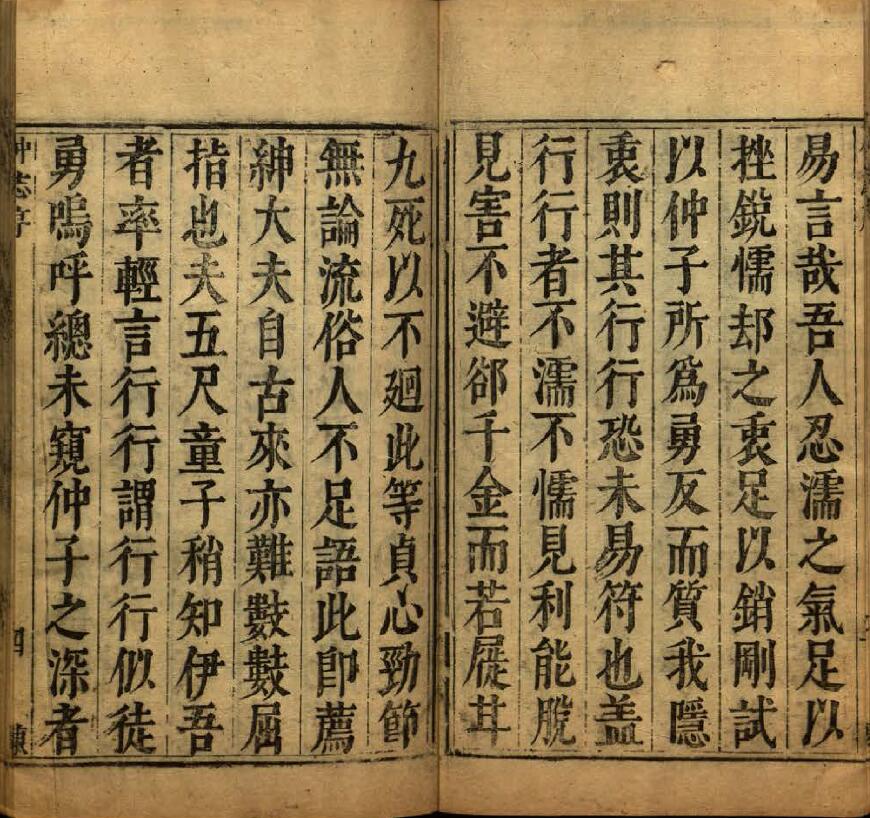 易言哉吾人忍濡之氣足以
挫銳懦却之衷足以銷剛試
以仲子所爲勇反而質我隱
衷則其行行恐未易符也盖
行行者不濡不懦見利能脫
見害不避郤千金而若屣甘
九死以不廻此等貞心勁節
無論流俗人不足語此卽薦
紳大夫自古來亦難數數屈
指也夫五尺童子稍知伊吾
者率輕言行行謂行行似徒
勇嗚呼總未窺仲子之深者
仲志序
四